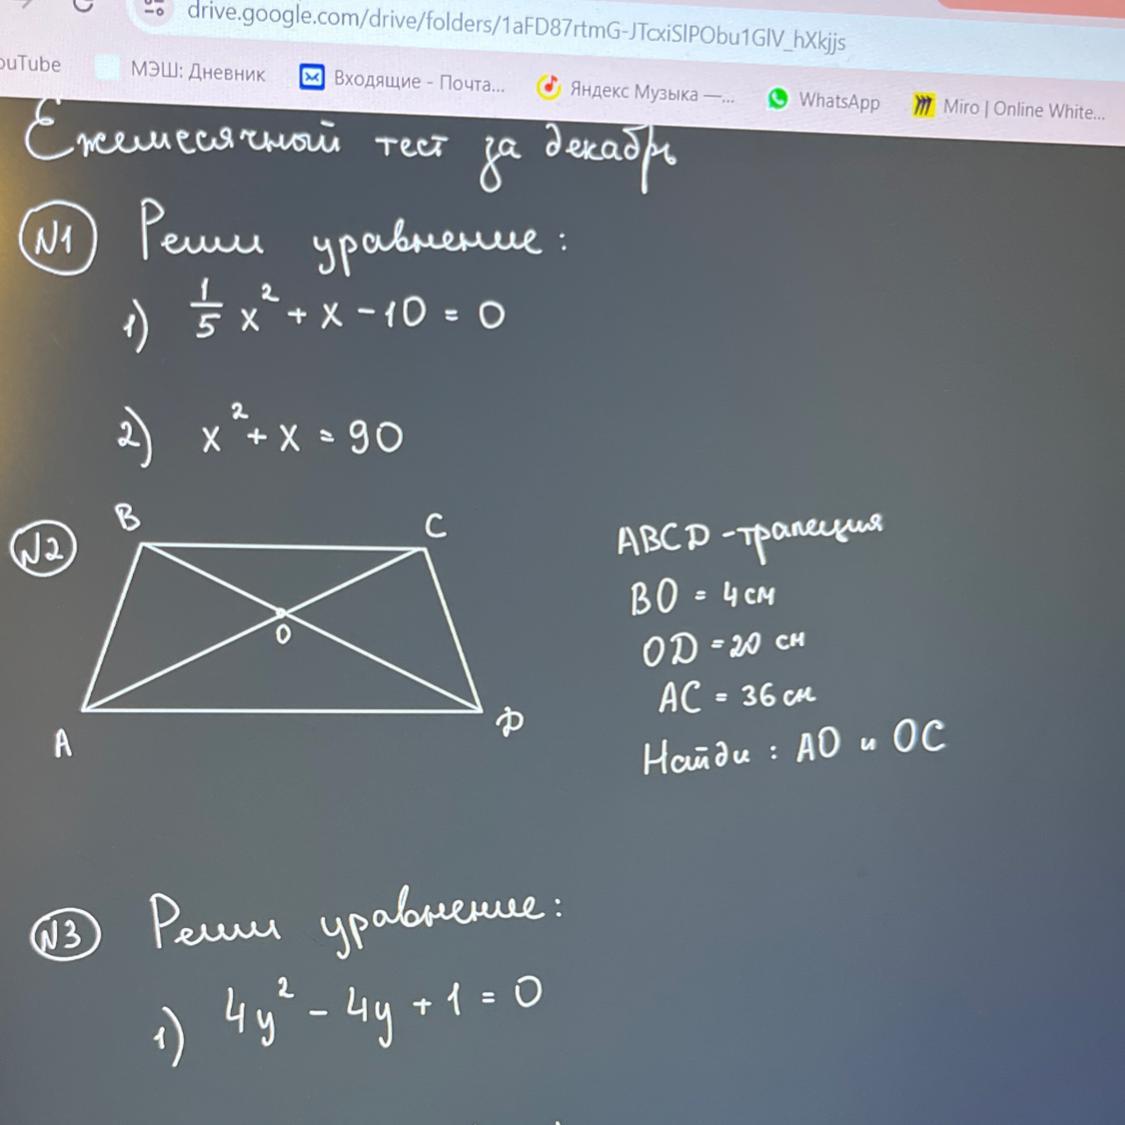 drive.google.com/drive/folders/1aFD87rtmG-JTcxiSIPObu1GIV_hXkjjs
ouTube МЭШ: Дневник Входящие - Почта... Яндекс Музыка —... WhatsApp Miro | Online White...
Ежемесячный тест за декабрь
N1 Реши уравнение:
1) 1/5 x² + x - 10 = 0
2) x² + x = 90
N2
B
C
O
A
D
ABCD - трапеция
BO = 4 см
OD = 20 см
AC = 36 см
Найди : AO и OC
N3 Реши уравнение:
1) 4y² - 4y + 1 = 0